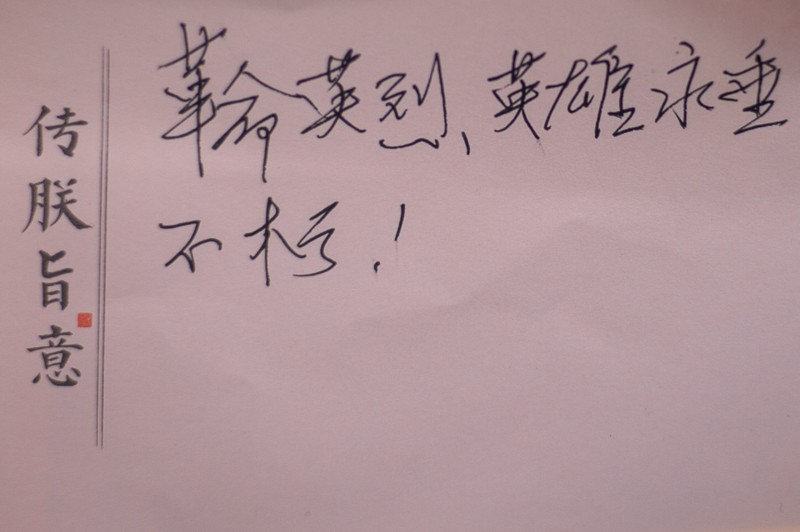 传朕旨意
革命英烈、英雄永垂
不朽！